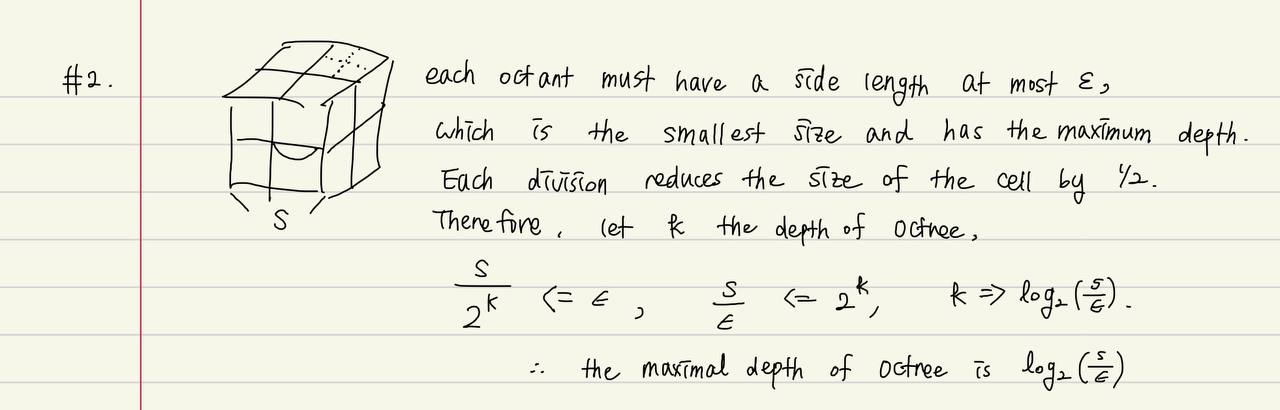 #2.
each octant must have a side length at most ε,
which is the smallest size and has the maximum depth.
Each division reduces the size of the cell by 1/2.
S
Therefore, let k the depth of octree,
S/2^k <= ε, S/ε <= 2^k, k => log₂(S/ε).
∴ the maximal depth of octree is log₂(S/ε)